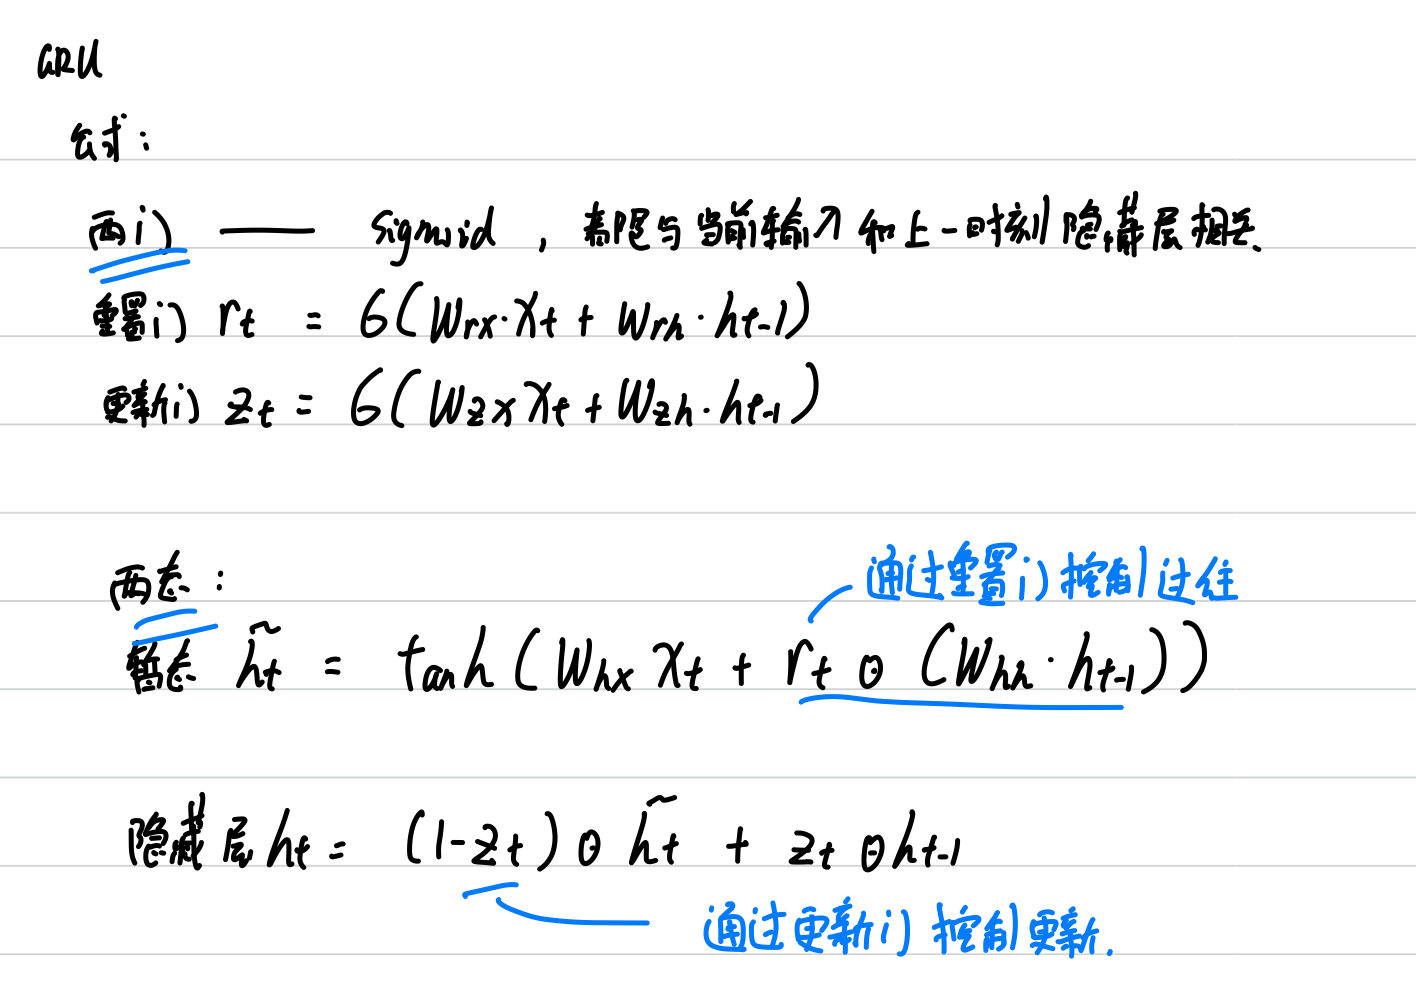 GRU
公式：
两门 —— Sigmoid ，都只与当前输入和上一时刻隐藏层相关.
重置门 rt = б(Wrx·Xt + Wrh·ht-1)
更新门 zt = б(WzxXt + Wzh·ht-1)
两态：
通过重置门控制过往
暂态 h̃t = tanh(Whx Xt + rt ⊙ (Whh·ht-1))
隐藏层ht = (1-zt) ⊙ h̃t + zt ⊙ ht-1
通过更新门控制更新.